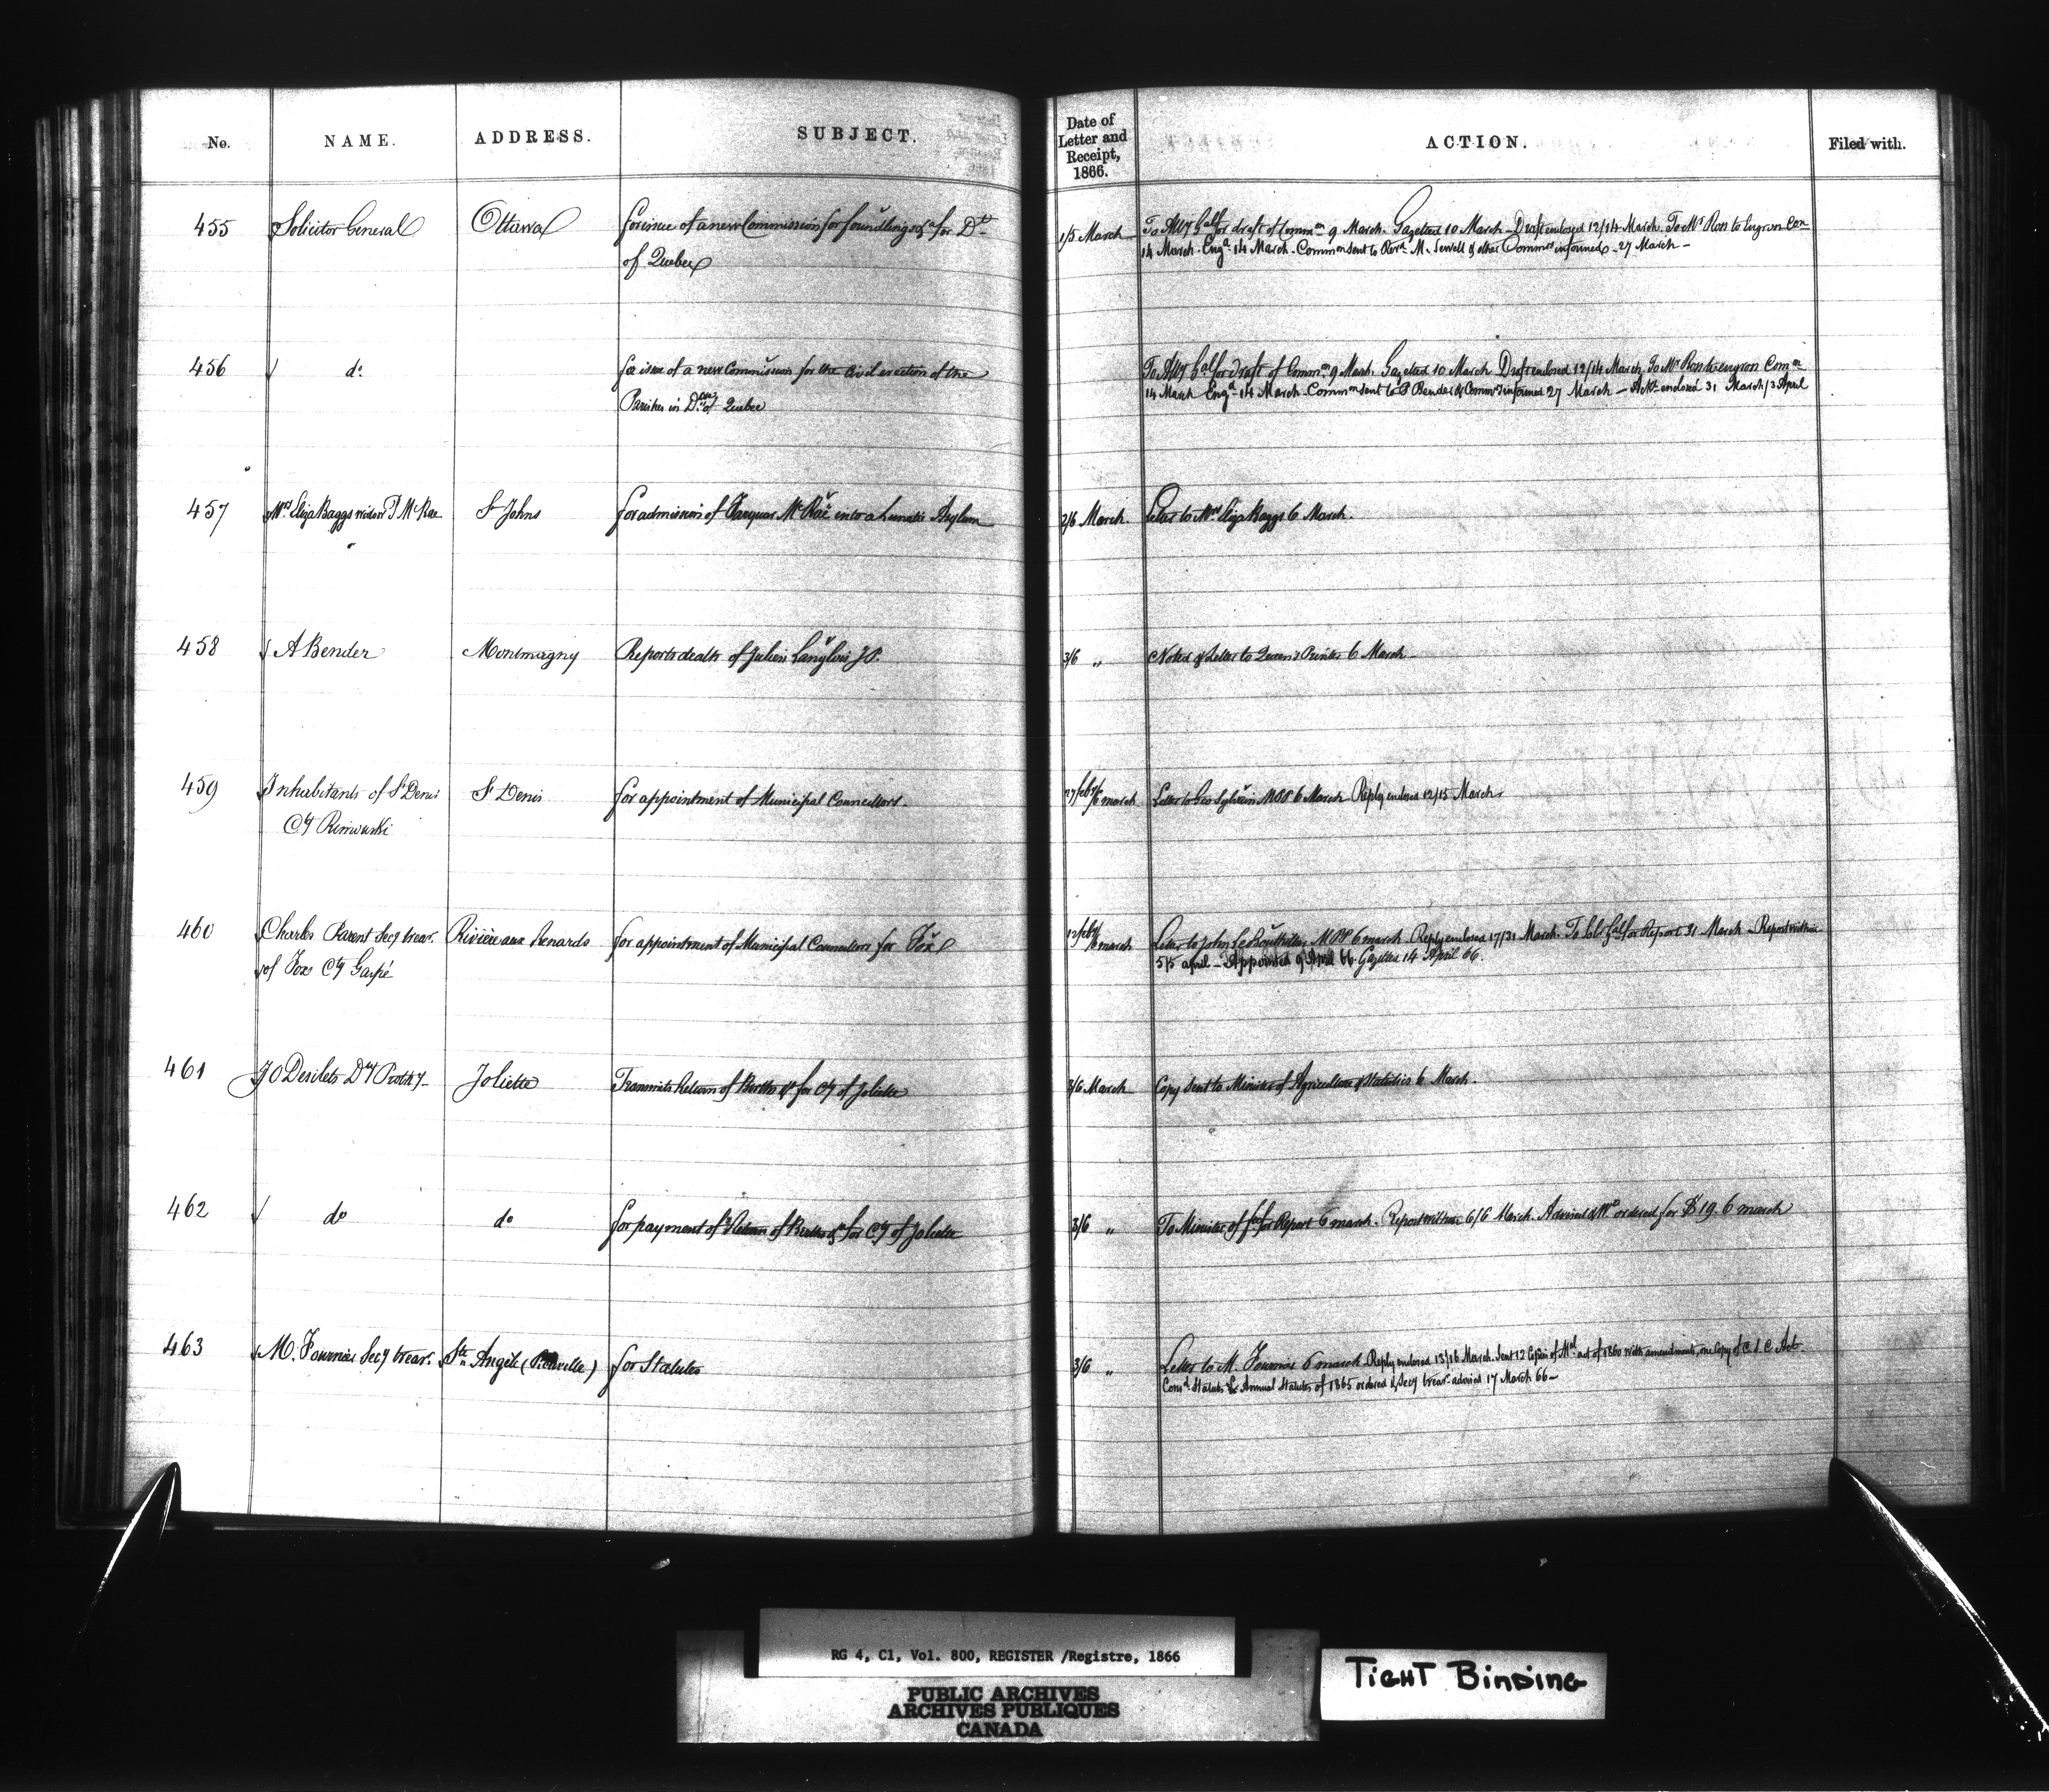 No.
NAME.
ADDRESS.
SUBJECT.
Date of
Letter and
Receipt,
1866.
ACTION.
Filed with.
455
Solicitor General
Ottawa
for issue of a new Commission for foundlings &a for Dt
of Quebec
1/5 March
To Atty Gal for draft of Common 9 March. Gazetted 10 March. Draft enclosed 12/14 March. To Mr Ross to engross Con
14 March. Engd 14 March. Common sent to Revd M. Sewell & other Commrs informed 27 March
456
do
for issue of a new Commission for the Civil erection of the
Parishes in of Quebec
To Atty Gal for draft of Commn 9 March. Gazetted 10 March. Draft enclosed 12/14 March. To Mr Ross to engross Comon
14 March Engd 14 March. Common sent to Bender & Commrs informed 27 March Ackt enclosed 31 March/3 April
457
Mrs Eliza Baggs widow McRae
St Johns
for admission of Farquar McRae into a Lunatic Asylum
2/6 March
Letter to Mrs Eliza Baggs 6 March.
458
A Bender
Montmagny
Reports death of Julien Langlois J.P.
3/6 "
Noted & Letter to Queen's Printer 6 March
459
Inhabitants of St Denis
Cty Rimouski
St Denis
for appointment of Municipal Councillors.
27 feby/6 march
Letter to Geo Sylvain MPP 6 March Reply enclosed 12/15 March
460
Charles Parent Secy trear.
of Fox Cty Gaspé
Rivière aux Renards
for appointment of Municipal Councillors for Fox
12 feby/6 march
Letter to John LeBoutillier MPP 6 march Reply enclosed 17/31 March. To Gal for Report 31 March - Report within
5/5 april - Appointed 9 April 66 Gazetted 14 April 66.
461
J O Desilets Dty Prothy
Joliette
Transmits Return of Births &c for Cty of Joliette
3/6 March
Copy sent to Minister of Agriculture & Statistics 6 March.
462
do
do
for payment of Return of Births &c for Cty of Joliette
3/6 "
To Minister of for Report 6 march. Report within 6/6 March. Advised & Wt ordered for $19. 6 march
463
M. Fournier Secy trear.
Ste Angèle (Rouville)
for Statutes
3/6 "
Letter to M. Fournier 6 march Reply enclosed 13/16 March. Sent 12 Copies of Mal act of 1860 with amendments, one Copy of C. L. C Act.
Consd Statutes & Annual Statutes of 1865 ordered & Secy trear advised 17 March 66
RG 4, C1, Vol. 800, REGISTER /Registre, 1866
PUBLIC ARCHIVES
ARCHIVES PUBLIQUES
CANADA
TIGHT BINDING